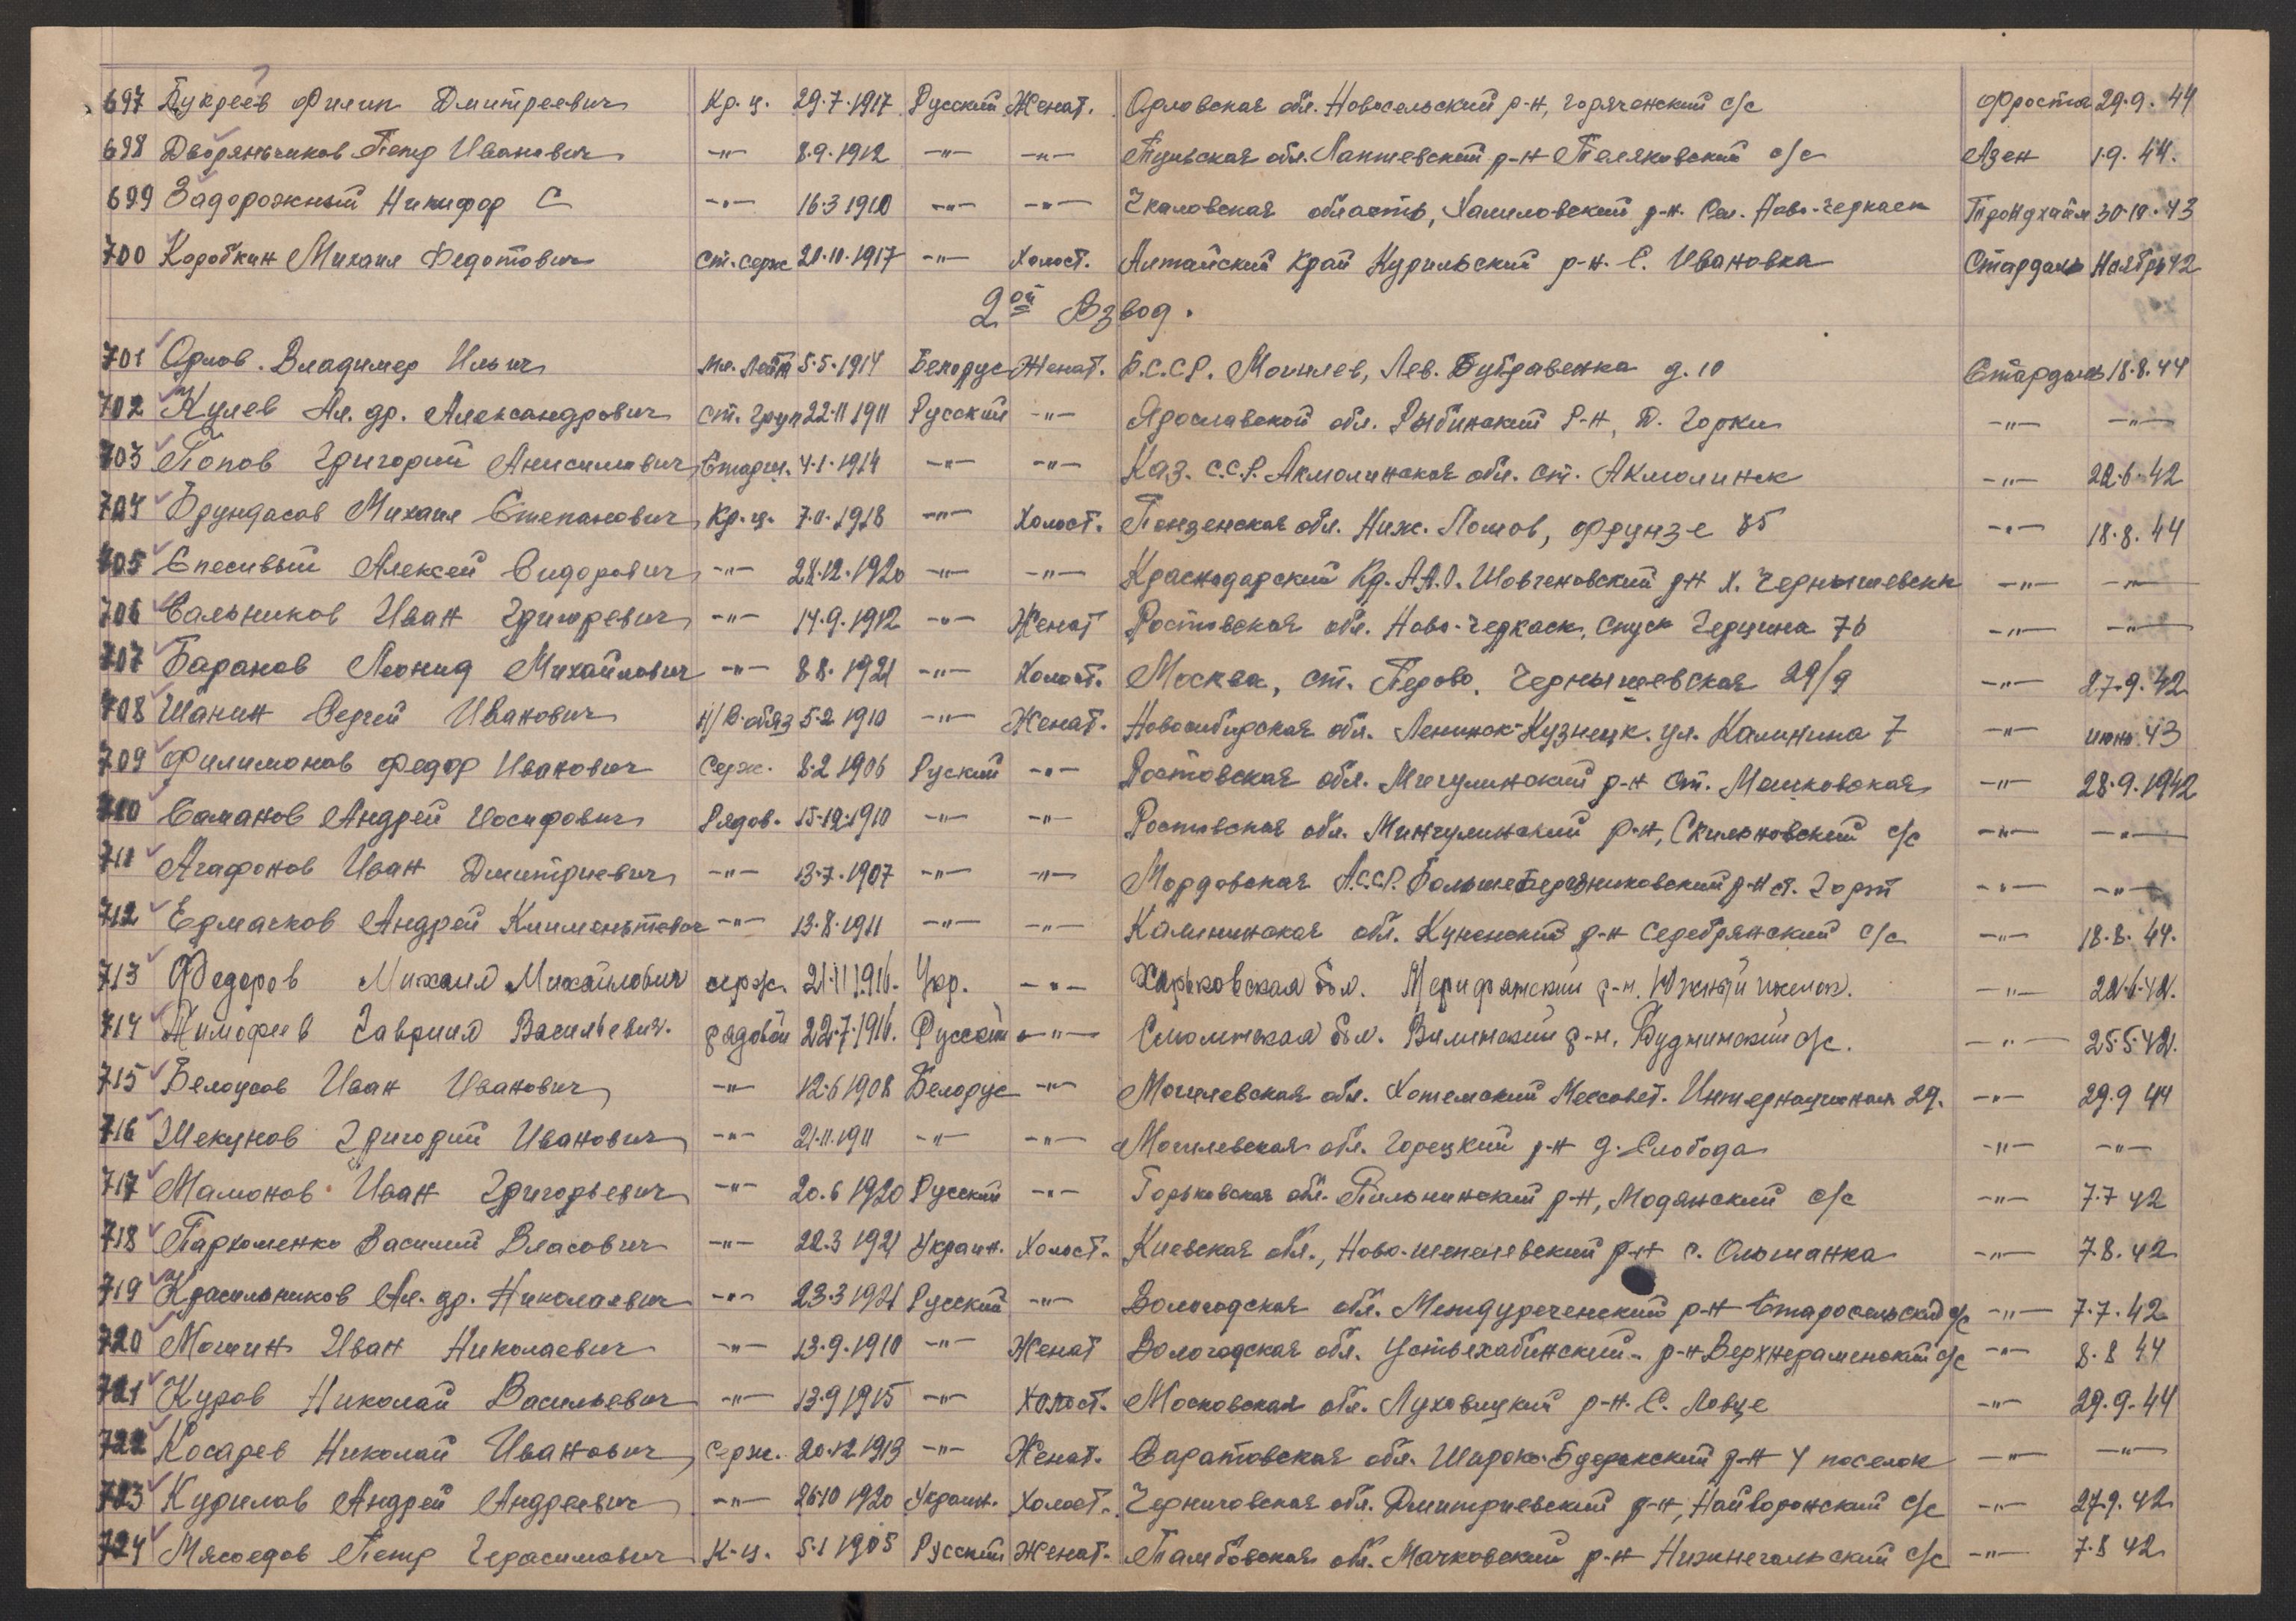 697 Букреев Филип Дмитреевич Кр.ц. 29.7.1917 Русский Женат. Орловская обл. Новосельский р-н, Горяченский с/с Фроста 29.9.44
698 Дворяньчиков Петр Иванович -"- 8.9.1912 -"- -"- Тульская обл. Лаптевский р-н Теляковский с/с Азен 1.9.44.
699 Задорожный Никифор С -"- 16.3 1910 -"- -"- Чкаловская область, Халиловский р-н. Сел. Ново-Черкаск Трондхайм 30.10.43
700 Коробкин Михаил Федотович Ст. Серж 20.10.1917 -"- Холост. Алтайский Край Курильский р-н. С. Ивановка Стардаль Ноябрь 42
2ой Взвод.
701 Орлов. Владимер Ильич Мл. Лейт 5.5.1914 Белорус Женат. Б.С.С.Р. Могилев, Лев. Дубравенка д. 10 Стардаль 18.8.44
702 Кулев Ал.др. Александрович Ст. Груп 22.11 1911 Русский -"- Ярославской обл. Рыбинский Р-н, Д. Горки -"- -"-
703 Попов Григорий Анисимович Стадш. 4.1.1914 -"- -"- Каз. С.С.Р. Акмолинская обл. ст. Акмолинск -"- 22.6.42
704 Брундасов Михаил Степанович Кр.ц. 7.11.1918 -"- Холост. Пензенская обл. Ниж. Ломов, Фрунзе 85 -"- 18.8.44
705 Спесивый Алексей Сидорович -"- 28.12.1920 -"- -"- Краснодарский Кр. А.А.О. Шовгеновский р-н х. Чернышевски -"- -"-
706 Сальников Иван Григоревич -"- 14.9.1912 -"- Женат Ростовская обл. Ново-Черкаск, спуск Герцина 76 -"- -"-
707 Баранов Леонид Михайлович -"- 8 8. 1921 -"- Холост. Москва, ст. Перово. Чернышевская 29/9 -"- 27.9.42
708 Шанин Сергей Иванович Н/В.обяз 5.2 1910 -"- Женат. Новосибирская обл. Ленинск-Кузнецк. ул. Калинина 7 -"- июнь 43
709 Филимонов Федор Иванович Серж. 8.2 1906 Руский -"- Ростовская обл. Мигулинский р-н ст. Мешковская -"- 28.9.1942
710 Саманов Андрей Иосифович Рядов. 15.12.1910 -"- -"- Ростовская обл. Мингулинский р-н, Скильновский с/с -"- -"-
711 Агафонов Иван Дмитриевич -"- 13.7.1907 -"- -"- Мордовская А.С.С.Р. Большеберезниковский р-н ст. Горт -"- -"-
712 Ермачков Андрей Климентьевич -"- 13.8.1911 -"- -"- Калининская обл. Куненский р-н Серебрянский с/с -"- 18.8.44.
713 Федоров Михаил Михайлович серж. 21.11.1916. Укр. -"- Харьковская обл. Мерифятский р-н. Южный -"- 22.6.42.
714 Тимофеев Гавриил Васильевич. рядовой 22.7.1916. Русский -"- Смоленская обл. Вилинский р-н. Руднинский с/с. -"- 25.5.42.
715 Белоусов Иван Иванович -"- 12.6 1908 Белорус -"- Могилевская обл. Хотемский Мессовет. Интернационал 29. -"- 29.9 44
716 Шекунов Григорий Иванович -"- 21.11.1911 -"- -"- Могилевская обл. Горецкий р-н д. Слобода -"- -"-
717 Мамонов Иван Григорьевич -"- 20.6 1920 Русский -"- Горьковская обл. Пильнинский р-н, Модянский с/с -"- 7.7 42
718 Пархоменко Василий Власович -"- 22.3 1921 Украин. Холост. Киевская обл., Ново-шепелевский р-н с. Ольшанка -"- 7.8.42
719 Красильников Ал.др. Николаевич -"- 23.3 1921 Русский -"- Вологодская обл. Междуреченский р-н Старосельский с/с -"- 7.7.42
720 Мошин Иван Николаевич -"- 13.9.1910 -"- Женат Вологодская обл. Устьехабинский- р-н Верхнераменский с/с -"- 8.8 44
721 Куров Николай Васильевич -"- 13.9 1915 -"- Холост. Московская обл. Луховицкий р-н. С. Ловце -"- 29.9.44
722 Косарев Николай Иванович Серж. 20.12.1913 -"- Женат. Саратовская обл. Широко-Бдеракский р-н 4 поселок -"- -"-
723 Курилов Андрей Андреевич -"- 26.10 1920 Украин. Холост. Черниговская обл. Дмитриевский р-н, Найворонский с/с -"- 27.9.42
724 Мясоедов Петр Герасимович К-ц. 5.1 1905 Русский Женат. Тамбовская обл. Мачковский р-н Нижнегальский с/с -"- 7.8 42